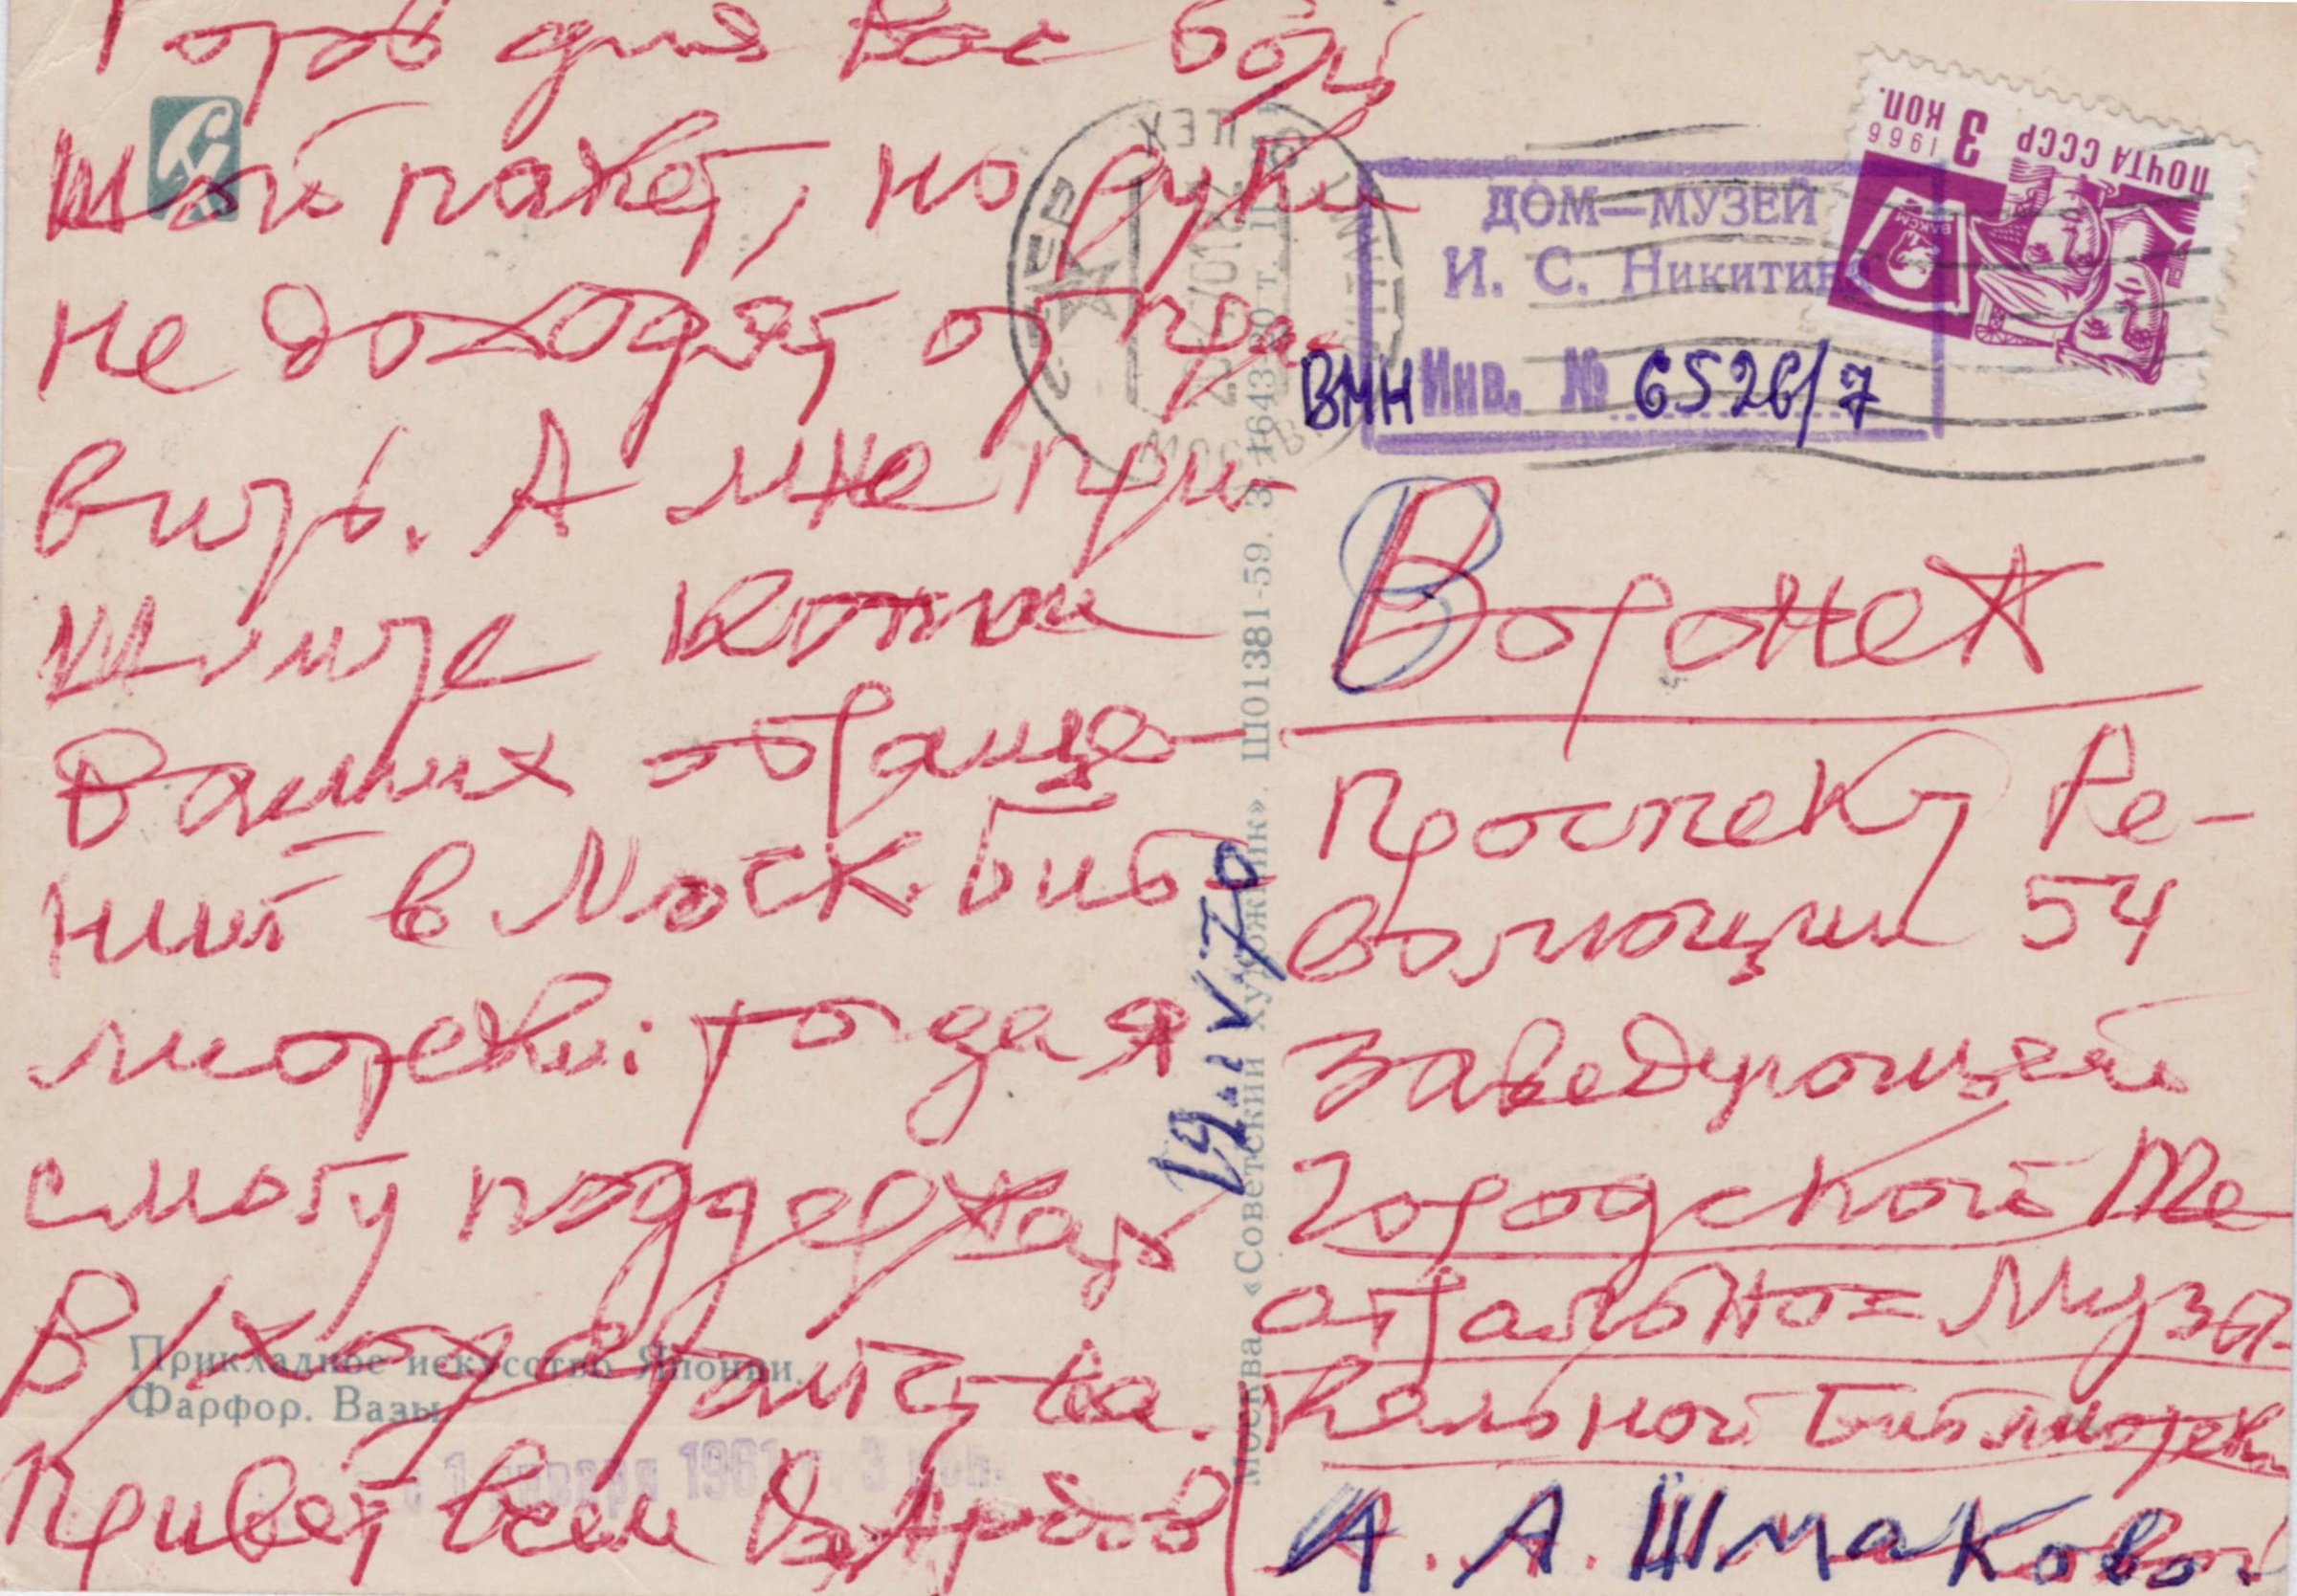 Готов для Вас боль
шой пакет, но руки
не доходят отпра-
вить. А мне при-
шлите копии
Ваших обраще-
ний в Моск. биб
лиотеки: тогда я
смогу поддержать
В/ходатайства.
Привет всем
Прикладное искусство Японии.
Фарфор. Вазы
с 1 января 1961 г. 3 коп.
19 V.70
Москва «Советский художник». Ш01381-59. З. 1643
МОСКВА
ПОЧТА СССР 3 КОП.
1966
ДОМ—МУЗЕЙ
И. С. Никитина
ВМН Инв. № 6526/7
Воронеж
Проспект Ре-
волюции 54
Заведующей
Городской Те
атрально= Музы-
кальной Библиотеки
А. А. Шмаковой